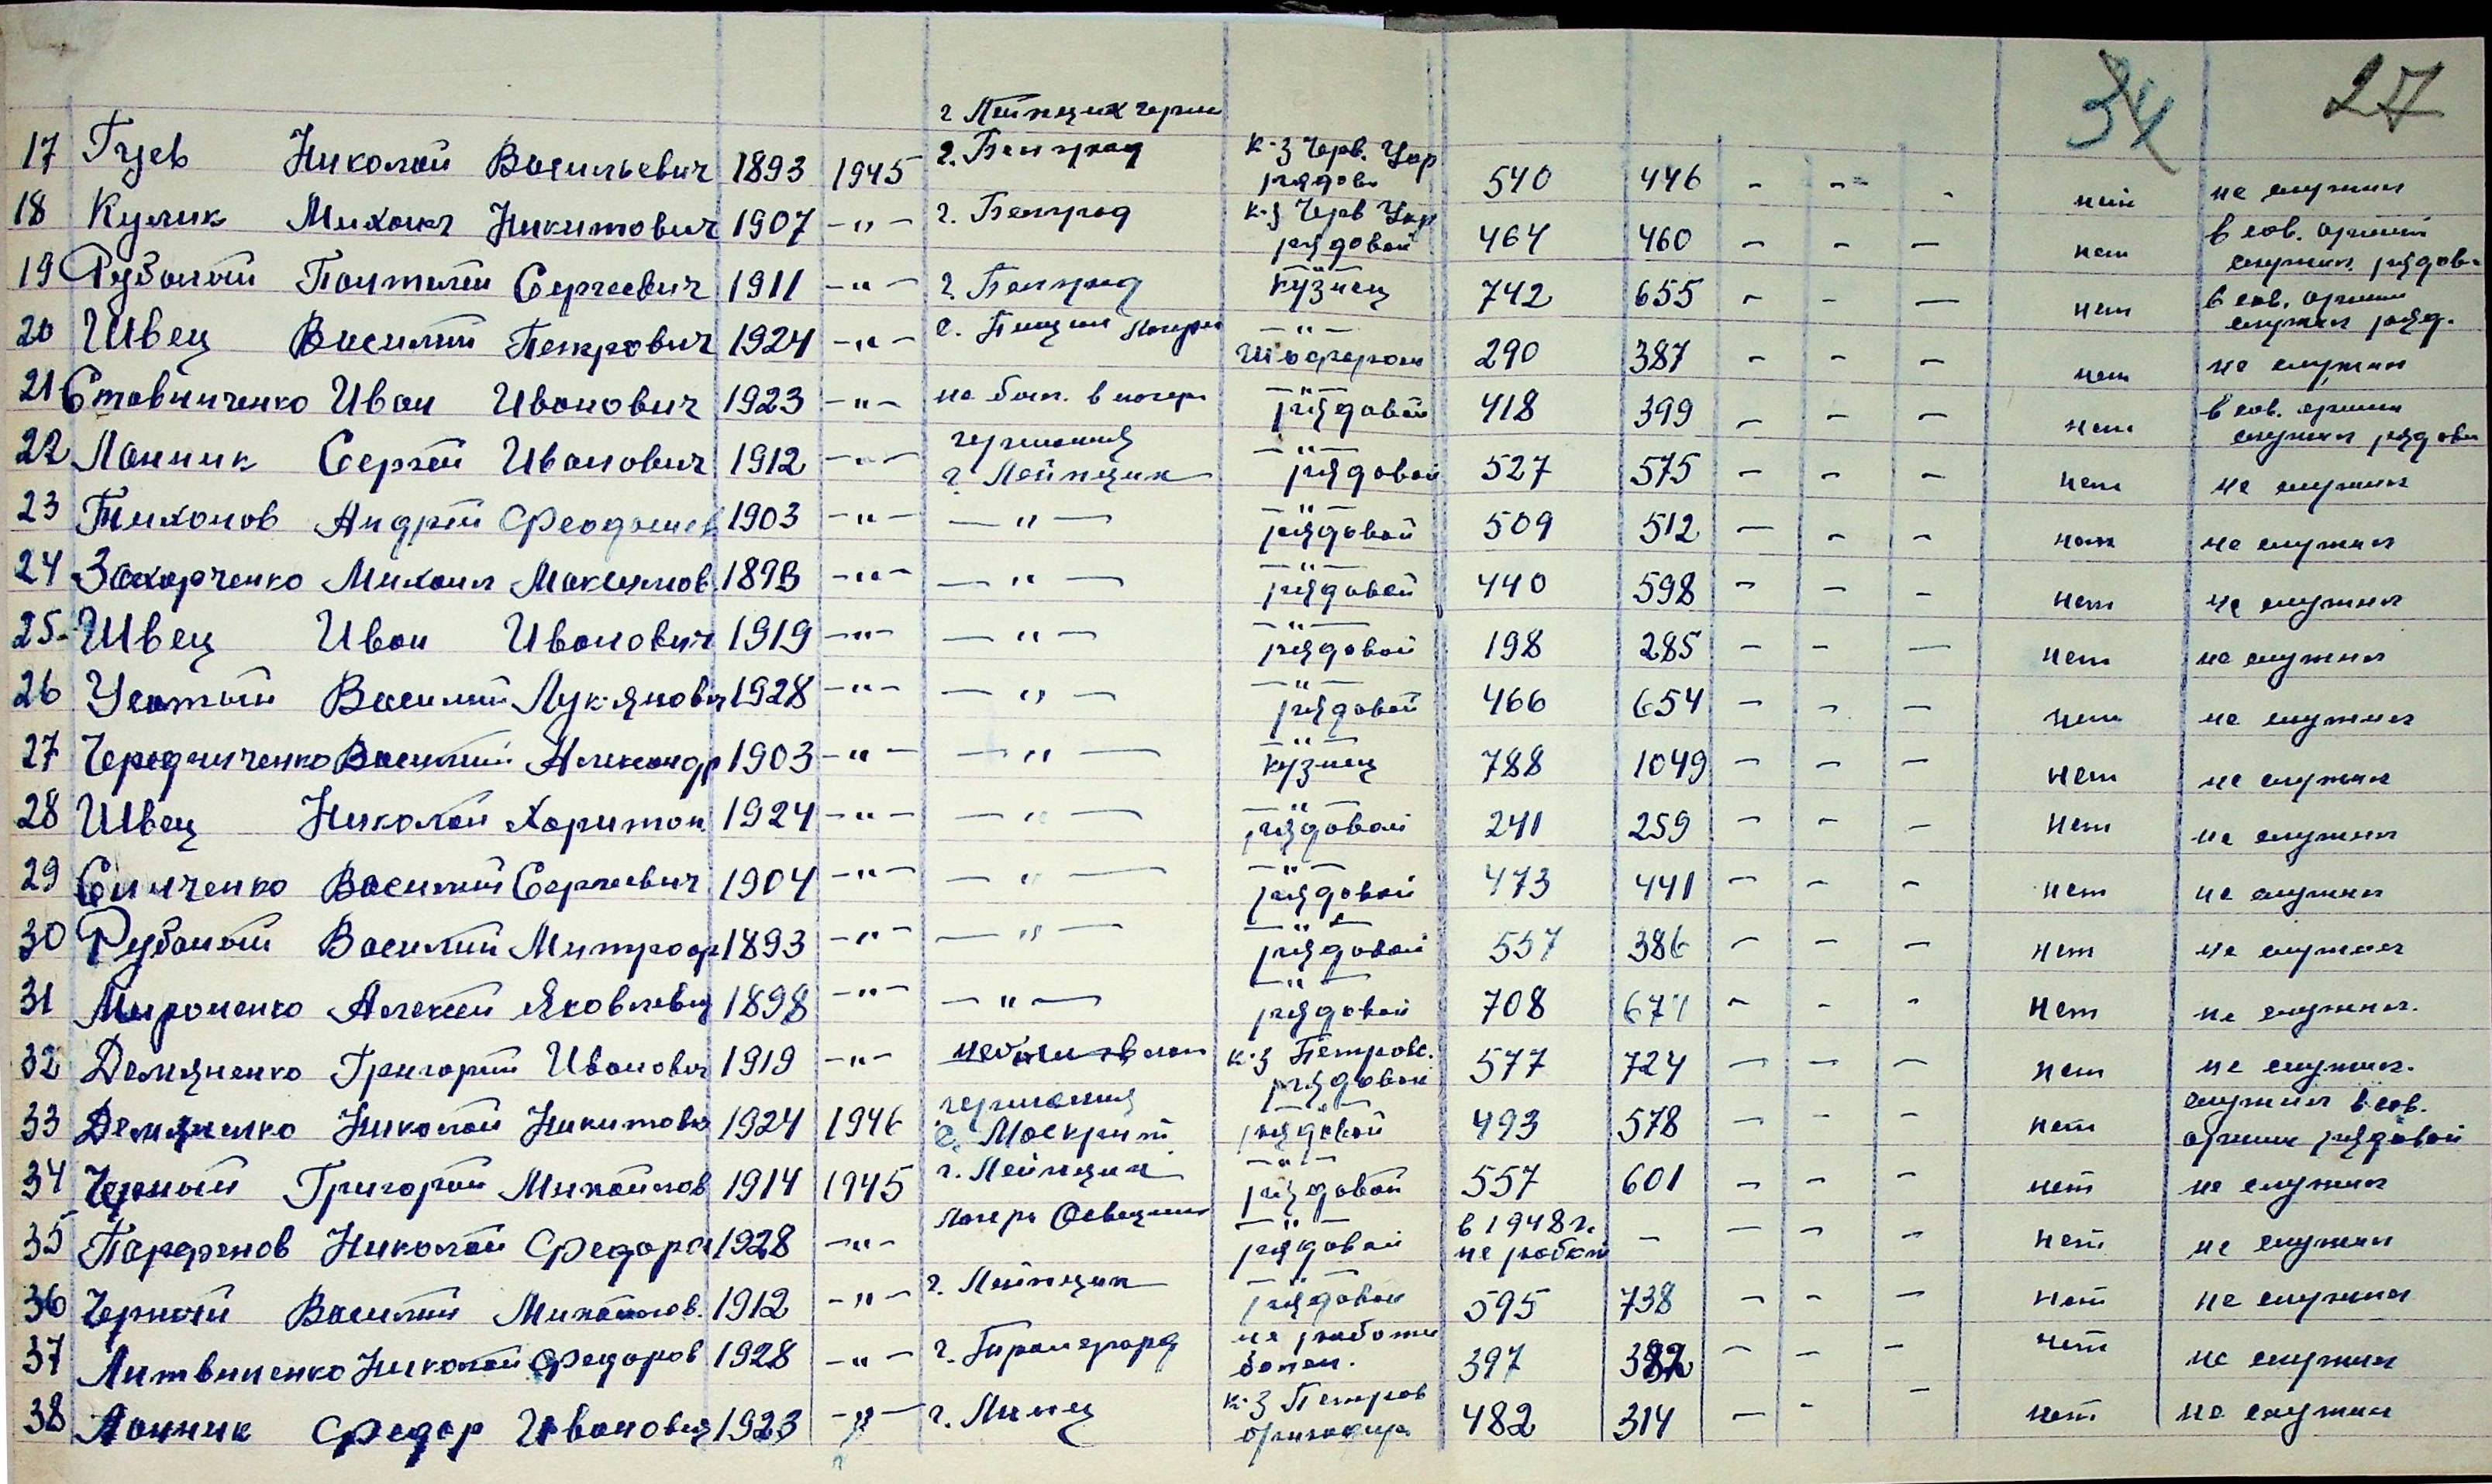 34 27
г Лейпциг герм
17 Гуев Николай Васильевич 1893 1945 г. Белград к-з Черв. Хар рядов. 540 446 - - - нет не служил
18 Кулик Михаил Никитович 1907 -"- г. Белград к-з Черв Хар рядовой 464 460 - - - нет в сов. армии служил рядов.
19 Рубаный Пантелей Сергеевич 1911 -"- г. Белград -"- кузнец 742 655 - - - нет в сов. армии служил ряд.
20 Швец Василий Петрович 1924 -"- с. лагерь -"- шофером 290 387 - - - нет не служил
21 Ставниченко Иван Иванович 1923 -"- не был в лагер -"- рядовой 418 399 - - - нет в сов. армии служил рядовы
22 Ланник Сергей Иванович 1912 -"- германия г. Лейпциг -"- рядовой 527 575 - - - нет не служил
23 Тихонов Андрей Феодосиев 1903 -"- -"- -"- рядовой 509 512 - - - нет не служил
24 Захарченко Михаил Максимов. 1893 -"- -"- -"- рядовой 440 598 - - - нет не служил
25. Швец Иван Иванович 1919 -"- -"- -"- рядовой 198 285 - - - нет не служил
26 Усатый Василий Лук-янович 1928 -"- -"- -"- рядовой 466 654 - - - нет не служил
27 Чередниченко Василий Александр 1903 -"- -"- -"- кузнец 788 1049 - - - нет не служил
28 Швец Николай Харитон 1924 -"- -"- -"- рядовой 241 259 - - - нет не служил
29 Синченко Василий Сергеевич 1904 -"- -"- -"- рядовой 473 441 - - - нет не служил
30 Рубаный Василий Митроф 1893 -"- -"- -"- рядовой 557 386 - - - нет не служил
31 Мироненко Алексей Яковлевич 1898 -"- -"- -"- рядовой 708 671 - - - нет не служил.
32 Демяненко Григорий Иванович 1919 -"- к-з Петровс. рядовой 577 724 - - - нет не служил.
33 Демяненко Николай Никитович 1924 1946 германия с. Маскрит -"- рядовой 493 578 - - - нет служил в сов. армии рядовой
34 Черный Григорий Михайлов 1914 1945 г. Лейпциг -"- рядовой 557 601 - - - нет не служил
35 Парфенов Николай Федоро 1928 -"- лагерь Освецим -"- рядовой в 1948 г. не работ - - - - нет не служил
36 Черный Василий Михайлов. 1912 -"- г. Лейпциг -"- рядовой 595 738 - - - нет не служил
37 Литвиненко Николай Федоров 1928 -"- г. не работал болен. 397 382 - - - нет не служил
38 Ланник Федор Иванович 1923 -"- г. Линец к-з Петров бригадир 482 314 - - - нет не служил